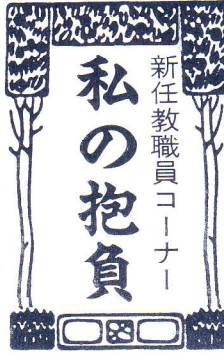 新任教職員コーナー
私の抱負